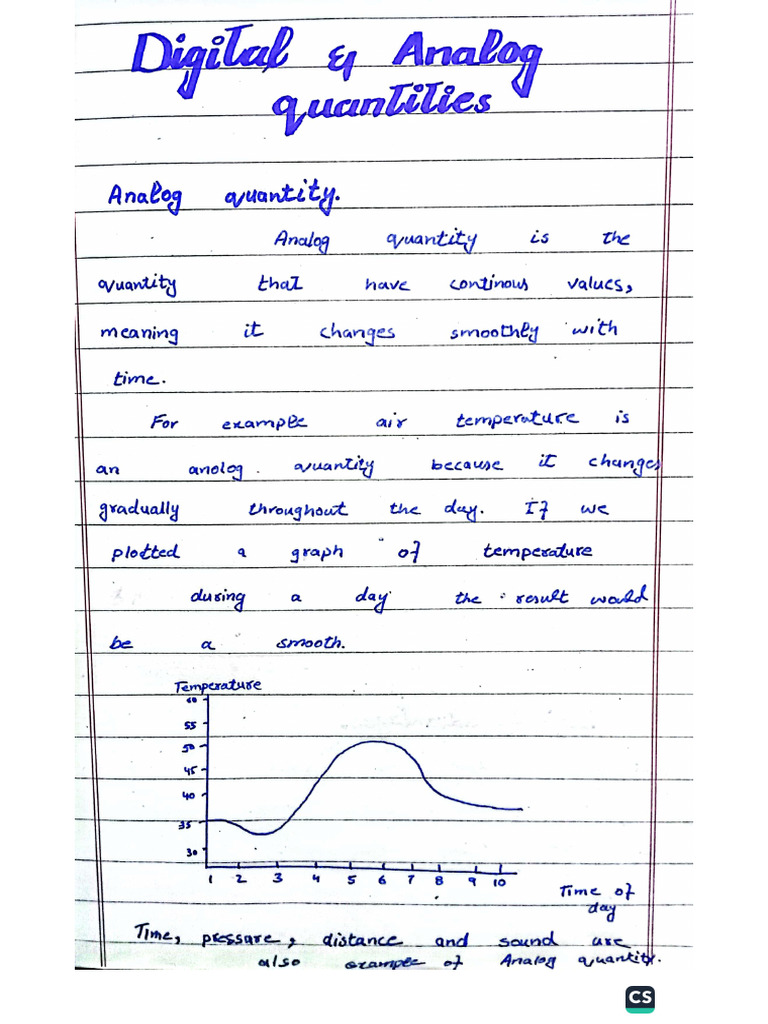 Digital & Analog
quantities
Analog quantity.
Analog quantity is the
quantity that have continous values,
meaning it changes smoothly with
time.
For example air temperature is
an anolog quantity because it changes
gradually throughout the day. If we
plotted a graph of temperature
during a day the result would
be a smooth.
Temperature
60
55
50
45
40
35
30
1 2 3 4 5 6 7 8 9 10
Time of
day
Time, pressure, distance and sound are
also example of Analog quantity.
CS